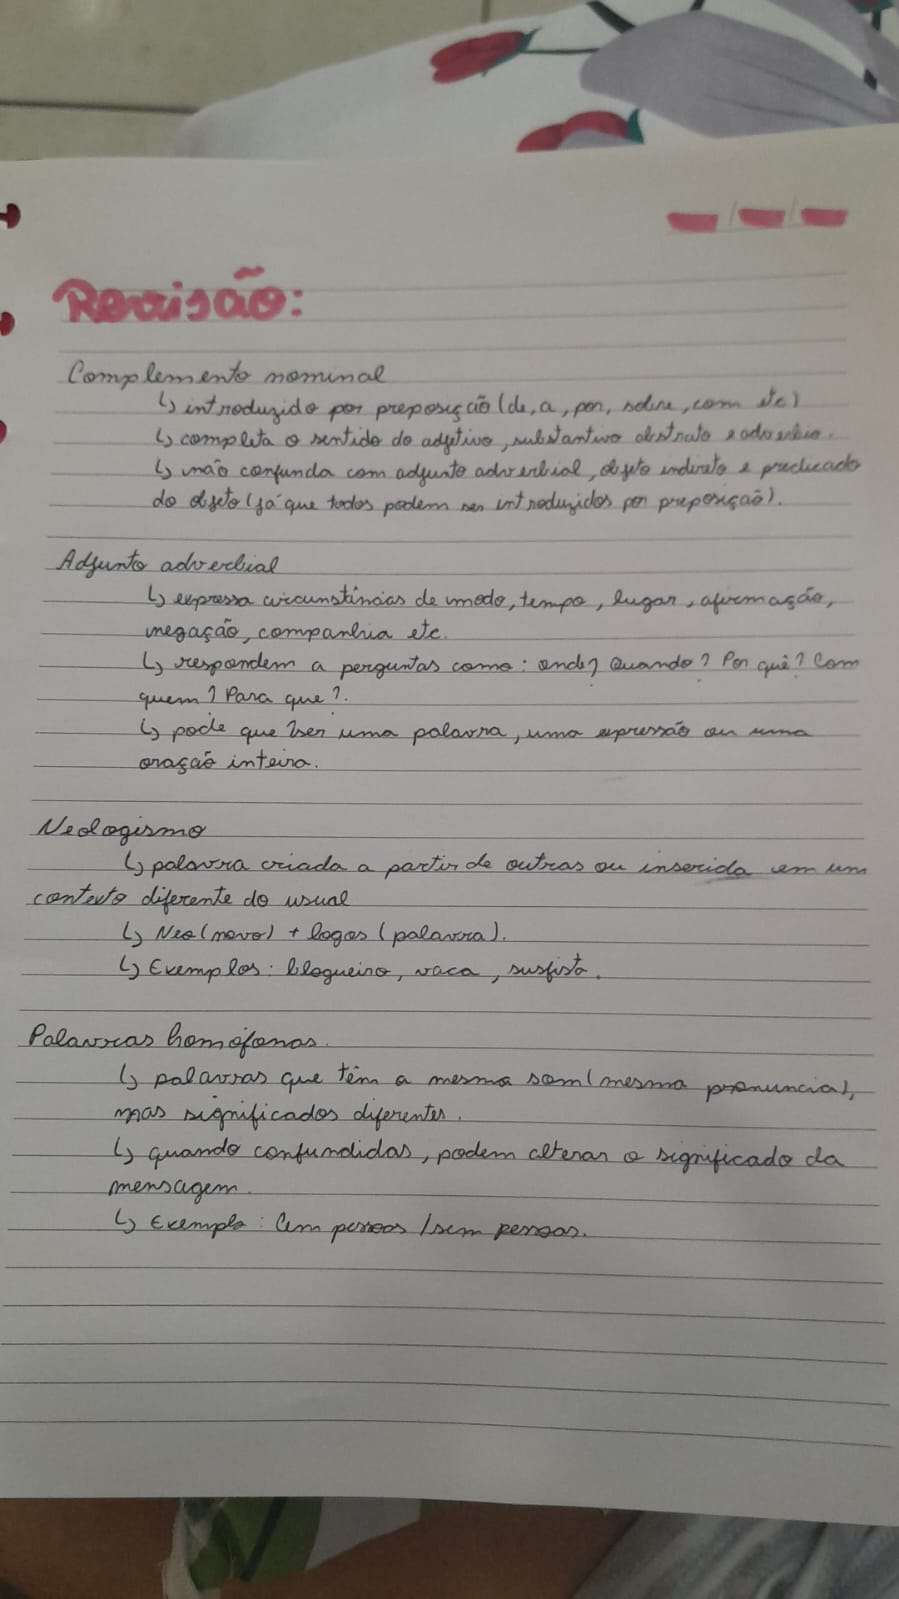 Revisão:
Complemento nominal
↳ introduzido por preposição (de, a, por, sobre, com etc)
↳ completa o sentido do adjetivo, substantivo abstrato e advérbio.
↳ não confunda com adjunto adverbial, objeto indireto e predicado
do objeto (já que todos podem ser introduzidos por preposição).
Adjunto adverbial
↳ expressa circunstâncias de modo, tempo, lugar, afirmação,
negação, companhia etc.
↳ respondem a perguntas como: onde? Quando? Por quê? Com
quem? Para que?.
↳ pode que ser uma palavra, uma expressão ou uma
oração inteira.
Neologismo
↳ palavra criada a partir de outras ou inserida em um
contexto diferente do usual
↳ Neo (novo) + logos (palavra).
↳ Exemplos: blogueiro, vaca,
Palavras homófonas.
↳ palavras que têm a mesma som (mesma pronuncia),
mas significados diferentes.
↳ quando confundidas, podem alterar o significado da
mensagem.
↳ Exemplo: Cem pessoas / sem pessoas.